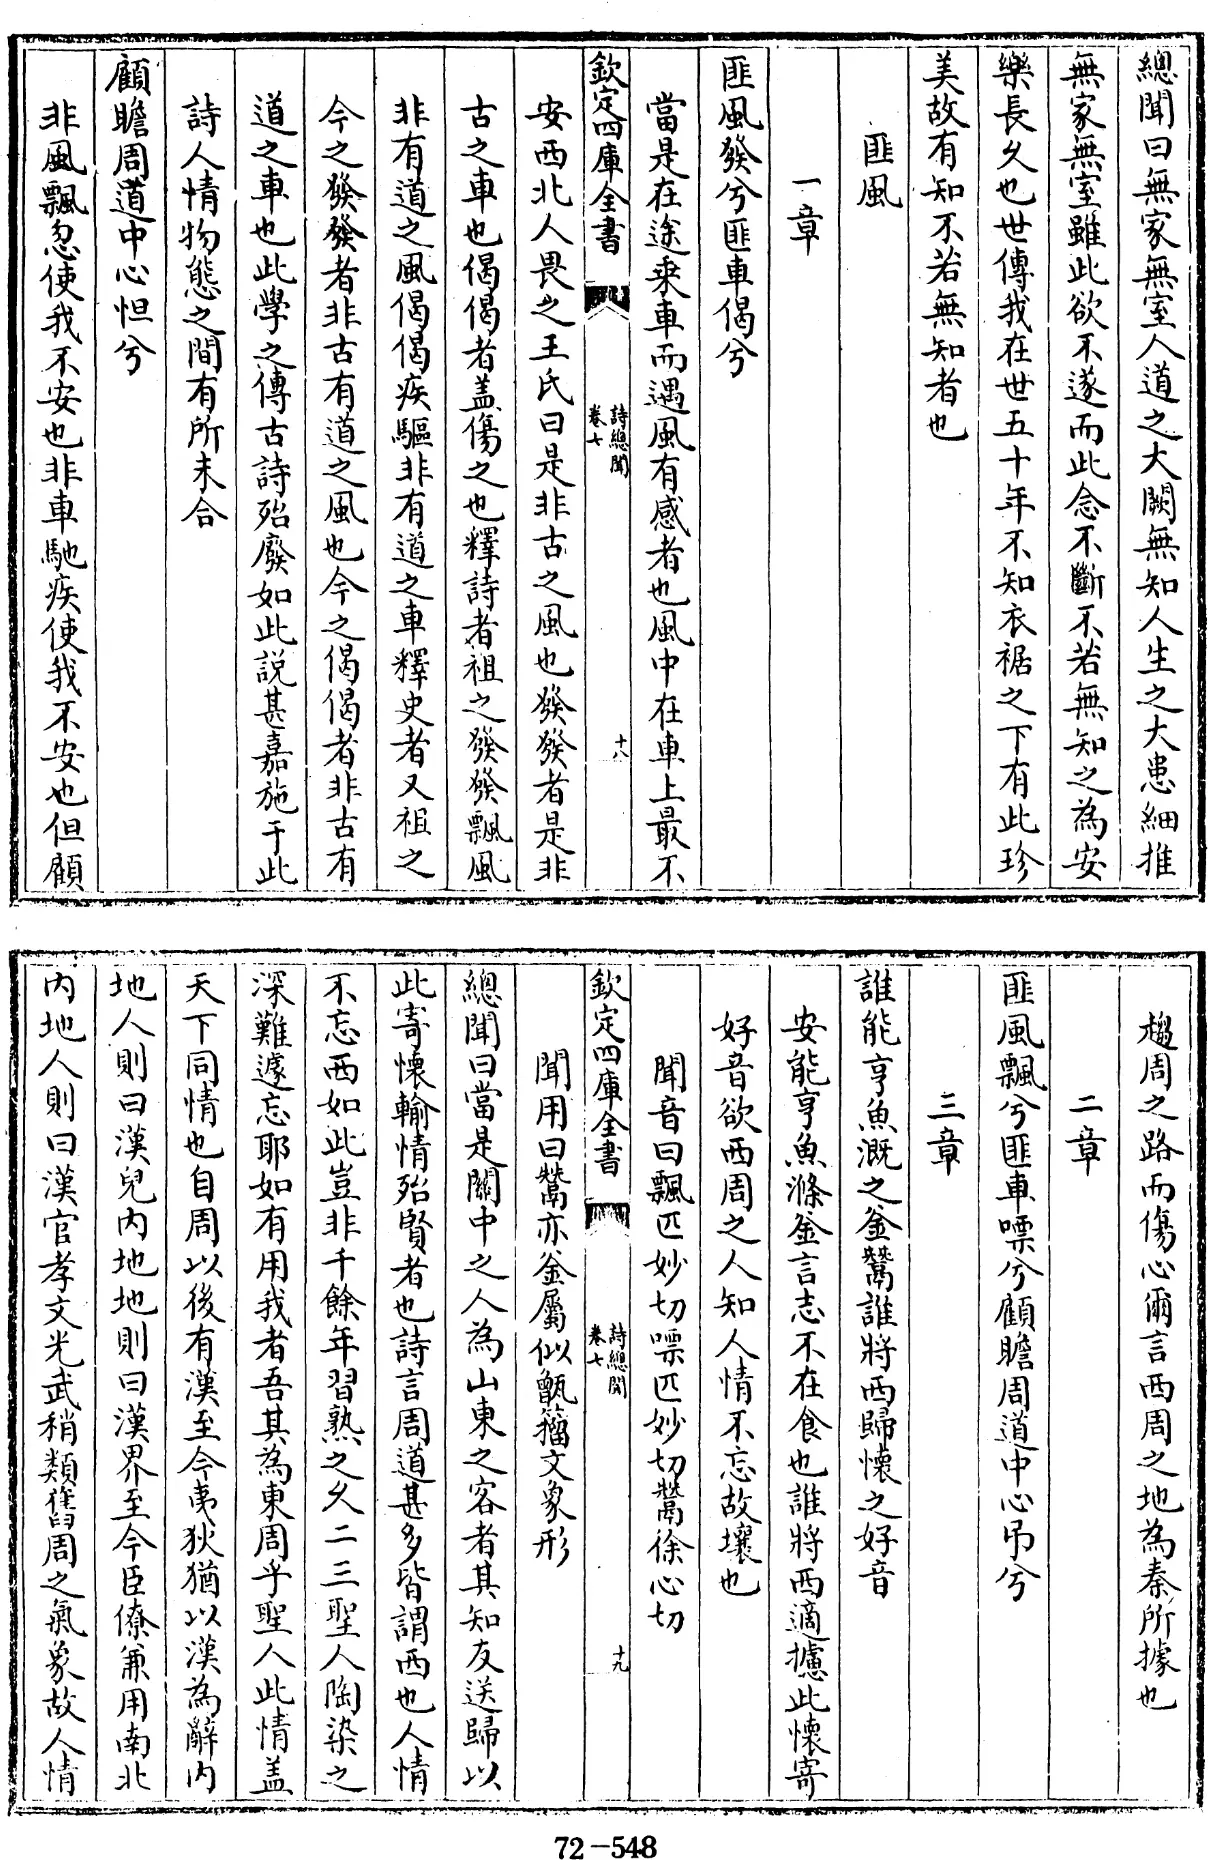 總聞曰無家無室人道之大闕無知人生之大患細推
無家無室雖此欲不遂而此念不斷不若無知之為安
樂長久也世傳我在世五十年不知衣裾之下有此珍
美故有知不若無知者也
匪風
一章
匪風發兮匪車偈兮
當是在途乘車而遇風有感者也風中在車上最不
欽定四庫全書
詩總聞
卷七
十八
安西北人畏之王氏曰是非古之風也發發者是非
古之車也偈偈者盖傷之也釋詩者祖之發發飄風
非有道之風偈偈疾驅非有道之車釋史者又祖之
今之發發者非古有道之風也今之偈偈者非古有
道之車也此學之傳古詩殆廢如此說甚嘉施于此
詩人情物態之間有所未合
顧瞻周道中心怛兮
非風飄忽使我不安也非車馳疾使我不安也但顧
趨周之路而傷心爾言西周之地為秦所據也
二章
匪風飄兮匪車嘌兮顧瞻周道中心弔兮
三章
誰能亨魚溉之釜鬵誰將西歸懷之好音
安能亨魚滌釜言志不在食也誰將西適攄此懷寄
好音欲西周之人知人情不忘故壤也
聞音曰飄匹妙切嘌匹妙切鬵徐心切
聞用曰鬵亦釜屬似甑籀文象形
欽定四庫全書
詩總聞
卷七
十九
總聞曰當是關中之人為山東之客者其知友送歸以
此寄懷輸情殆賢者也詩言周道甚多皆謂西也人情
不忘西如此豈非千餘年習熟之久二三聖人陶染之
深難遽忘耶如有用我者吾其為東周乎聖人此情盖
天下同情也自周以後有漢至今夷狄猶以漢為辭内
地人則曰漢兒内地地則曰漢界至今臣僚兼用南北
内地人則曰漢官孝文光武稍類舊周之氣象故人情
72-548